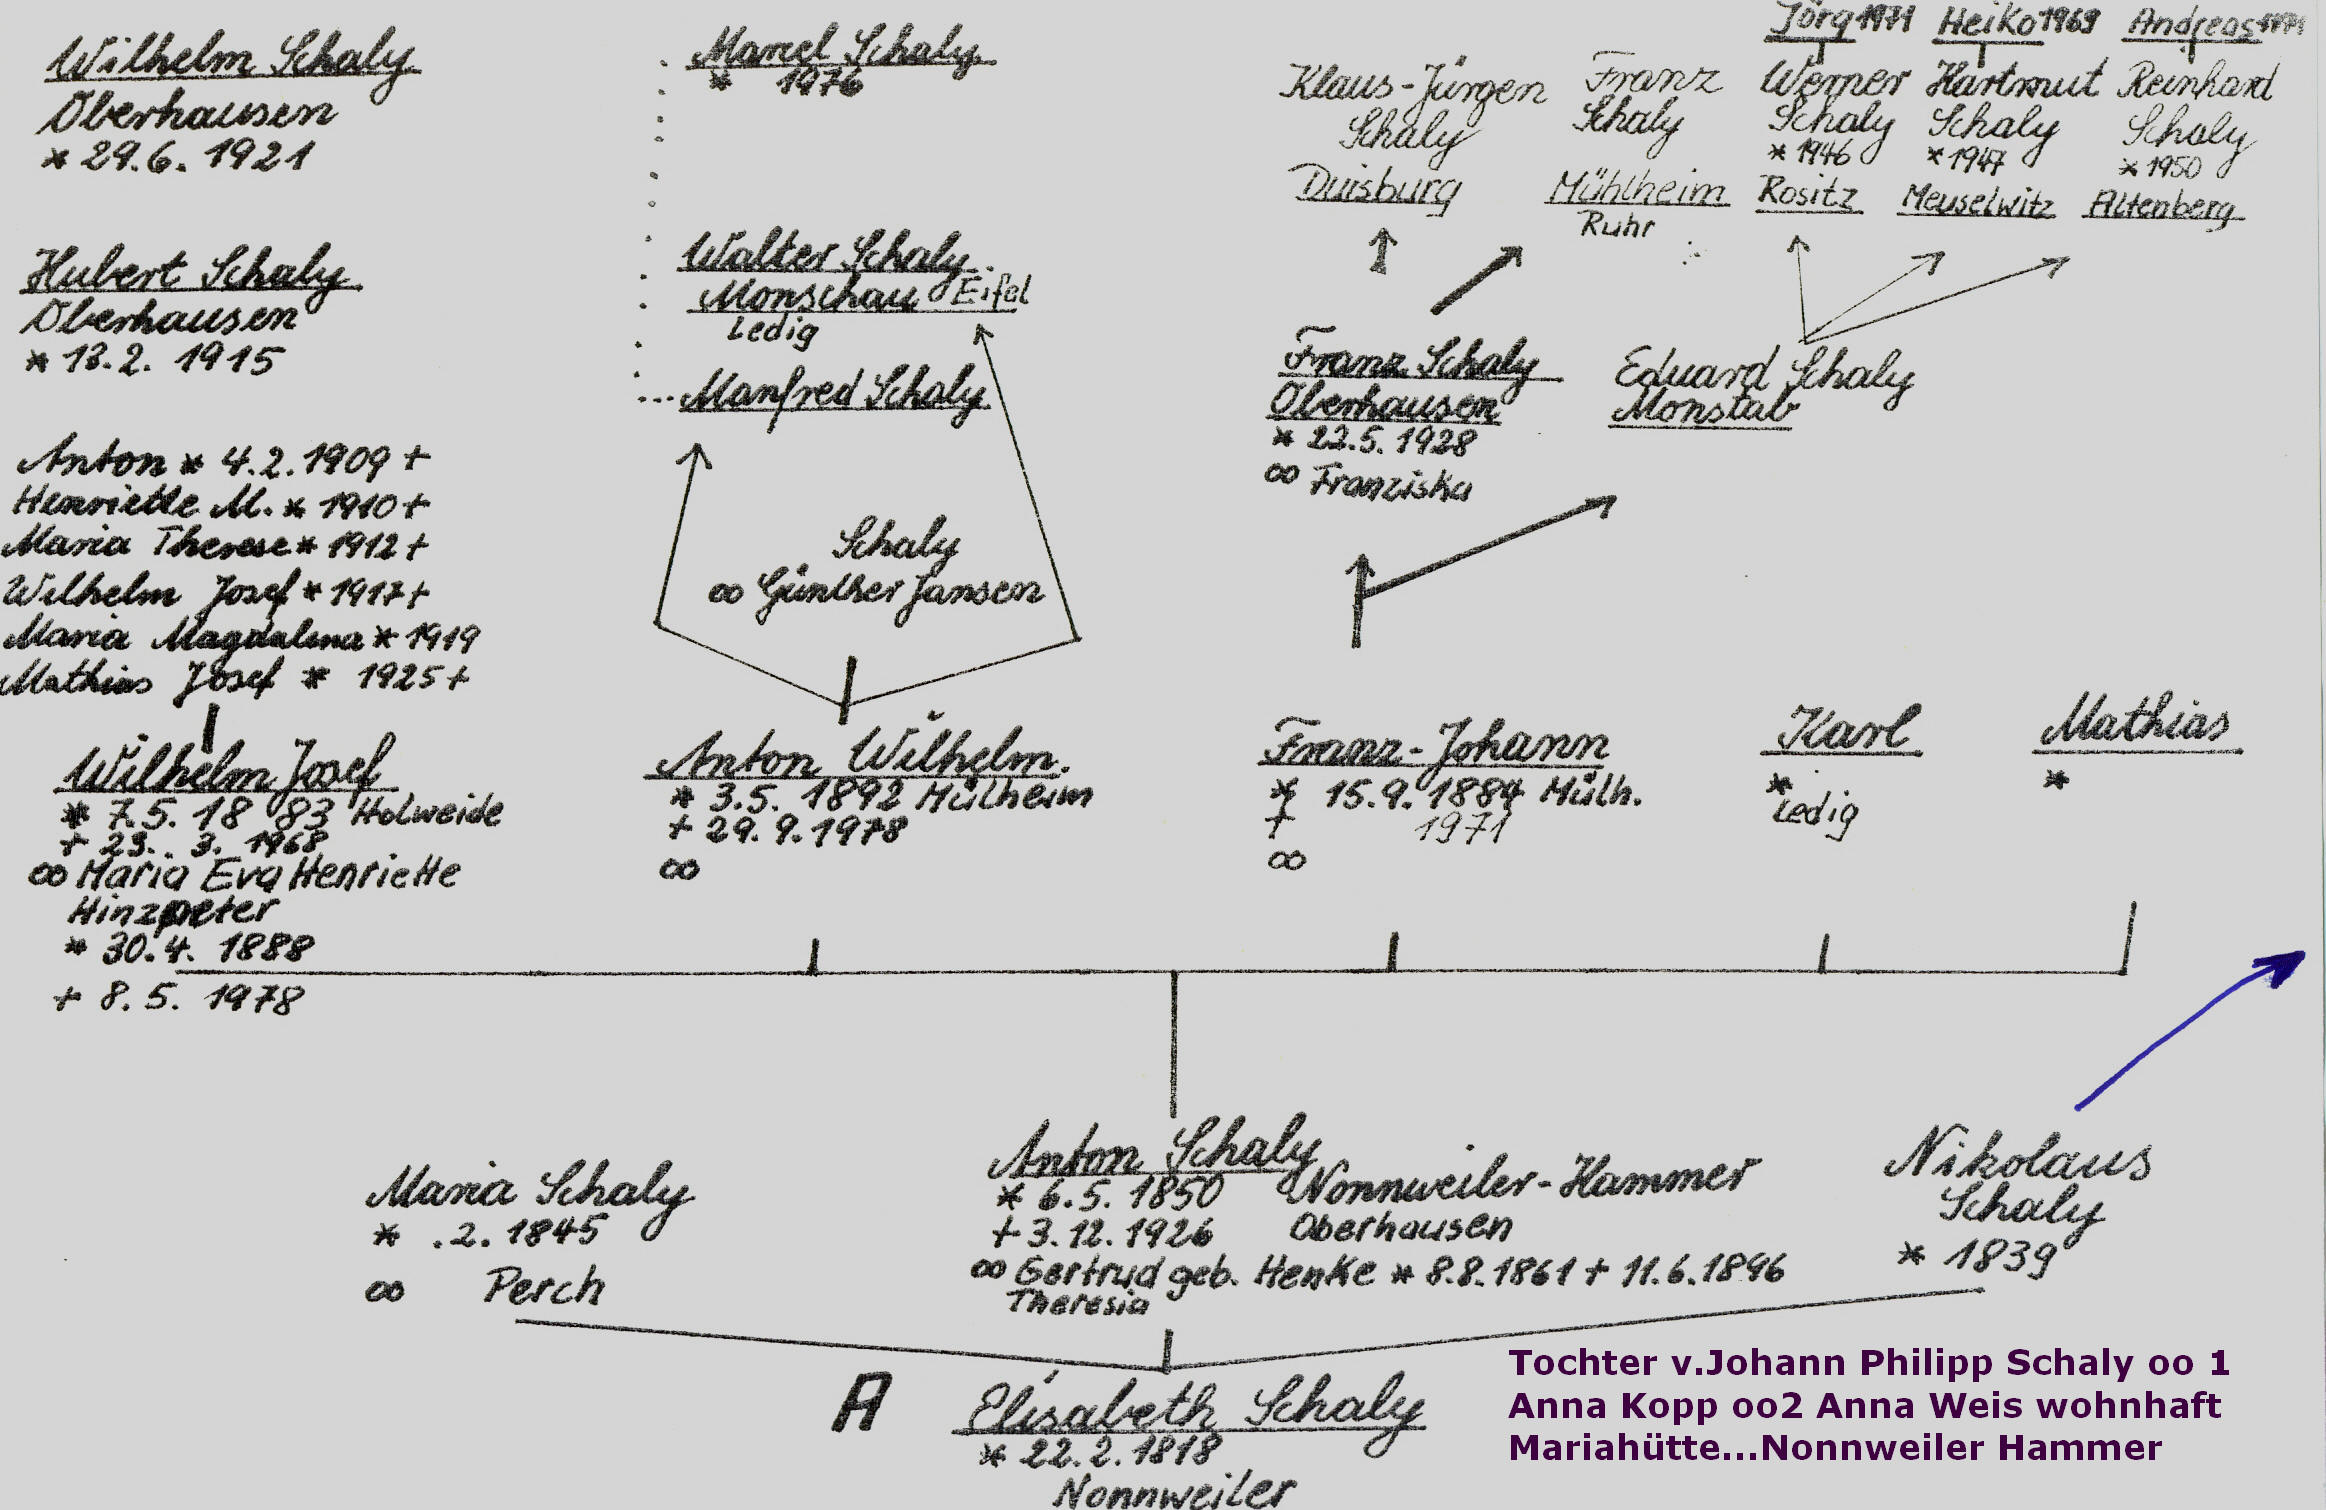 Wilhelm Schaly
Oberhausen
* 29.6. 1921
Hubert Schaly
Oberhausen
* 13.2. 1915
Anton * 4.2.1909 +
Henriette M. * 1910 +
Maria Therese * 1912 +
Wilhelm Josef * 1917 +
Maria Magdalena * 1919
Mathias Josef * 1925 +
Wilhelm Josef
* 7.5. 18 83 Holweide
+ 23. 3. 1968
∞ Maria Eva Henriette
Hinzpeter
* 30.4. 1888
+ 8. 5. 1978
Marcel Schaly
* 1976
Walter Schaly
Monschau Eifel
Ledig
Manfred Schaly
Schaly
∞ Günther Jansen
Anton Wilhelm.
* 3.5. 1892 Mülheim
+ 29. 9. 1978
∞
Klaus-Jürgen
Schaly
Duisburg
Franz
Schaly
Mühlheim
Ruhr
Jörg 1971
Werner
Schaly
* 1946
Rositz
Heiko 1969
Hartmut
Schaly
* 1947
Meuselwitz
Andreas 1971
Reinhard
Schaly
* 1950
Altenberg
Franz Schaly
Oberhausen
* 22.5. 1928
∞ Franziska
Eduard Schaly
Monstab
Franz-Johann
* 15.9. 1884 Mülh.
+ 1971
∞
Karl
*
Ledig
Mathias
*
Maria Schaly
* .2. 1845
∞ Perch
Anton Schaly
* 6.5. 1850 Nonnweiler-Hammer
+ 3.12. 1926 Oberhausen
∞ Gertrud geb. Henke * 8.8.1861 + 11.6.1896
Theresia
Nikolaus
Schaly
* 1839
A Elisabeth Schaly
* 22.2. 1818
Nonnweiler
Tochter v.Johann Philipp Schaly oo 1
Anna Kopp oo2 Anna Weis wohnhaft
Mariahütte...Nonnweiler Hammer